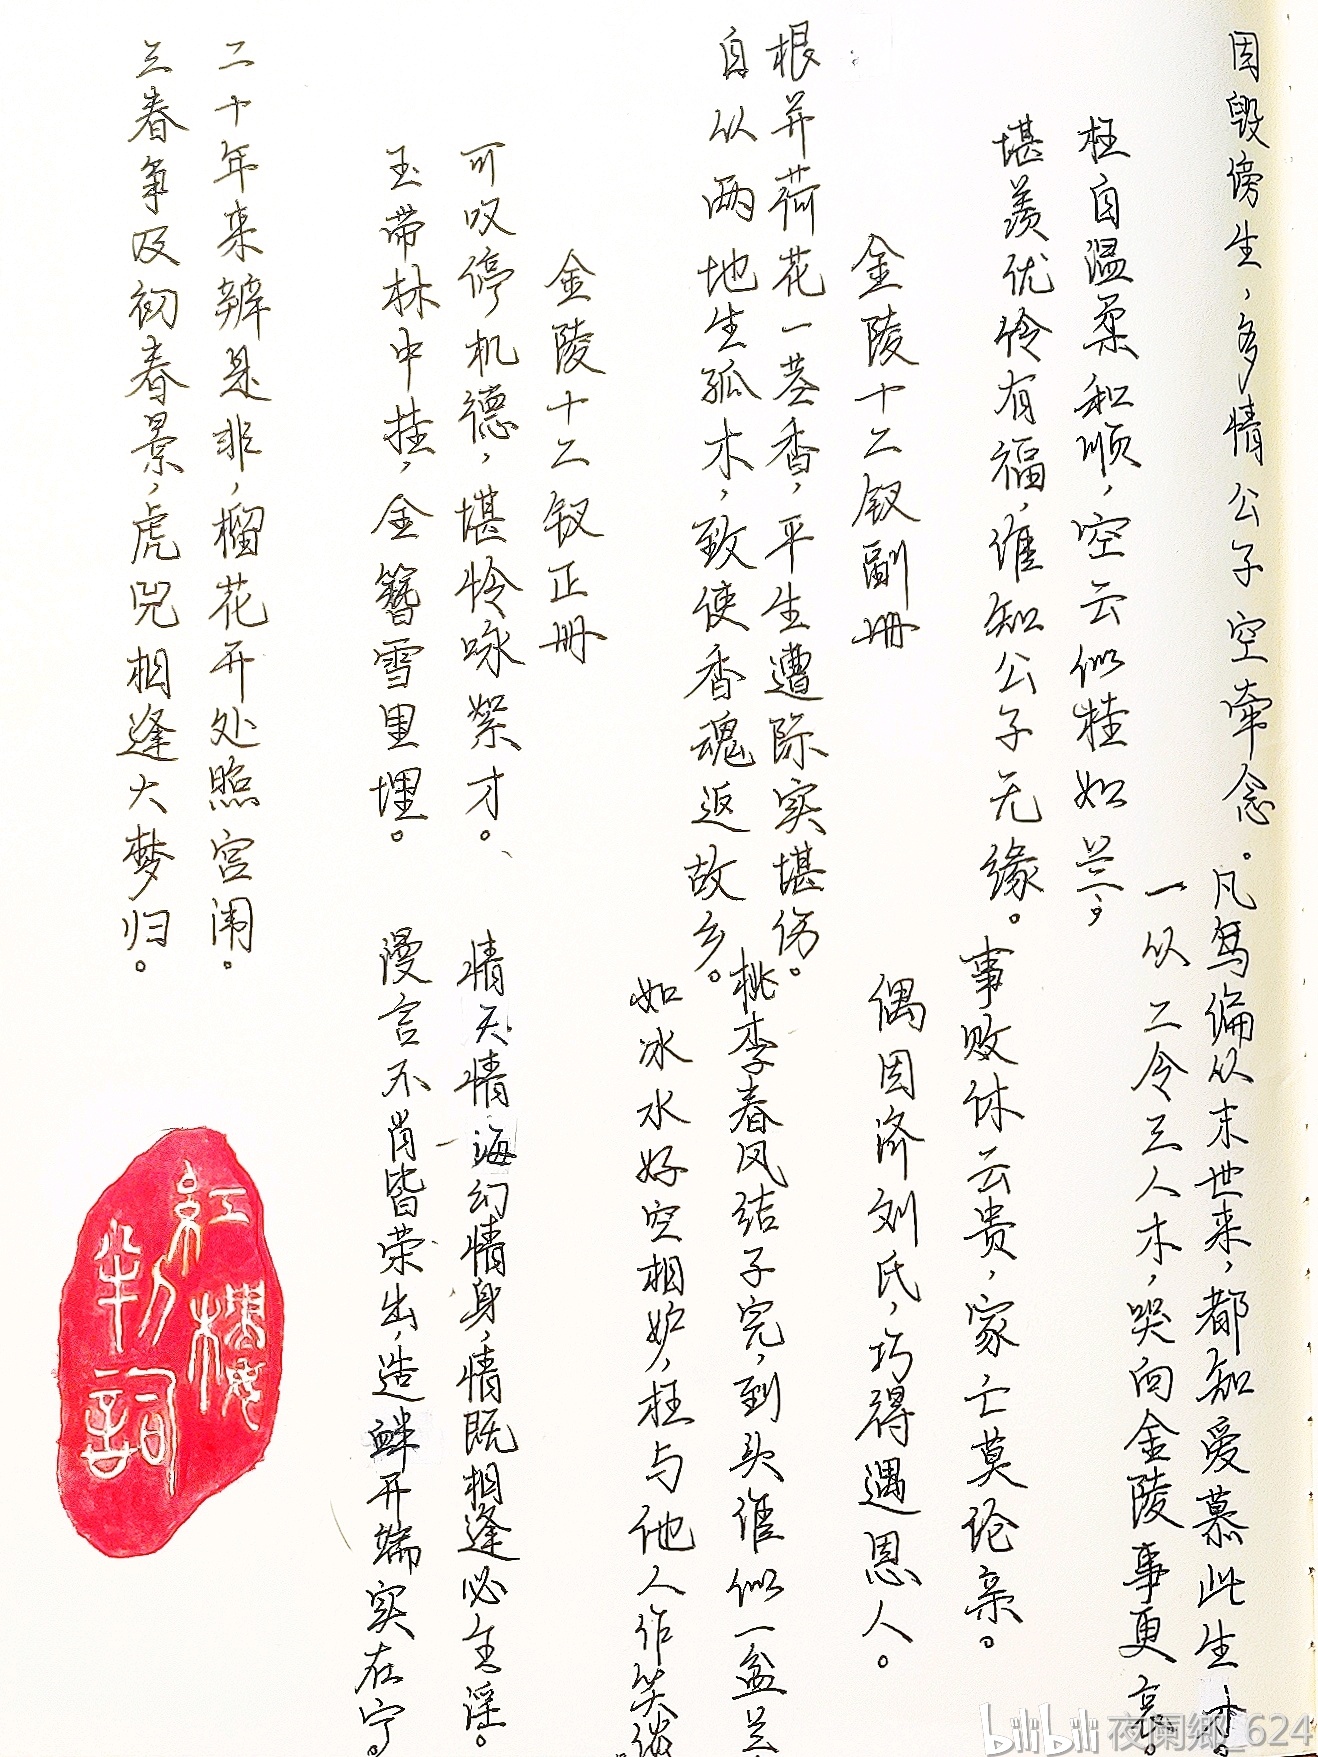 因毁谤生，多情公子空牵念。
枉自温柔和顺，空云似桂如兰；
堪羡优伶有福，谁知公子无缘。
金陵十二钗副册
根并荷花一茎香，平生遭际实堪伤。
自从两地生孤木，致使香魂返故乡。
金陵十二钗正册
可叹停机德，堪怜咏絮才。
玉带林中挂，金簪雪里埋。
二十年来辨是非，榴花开处照宫闱。
三春争及初春景，虎兕相逢大梦归。
凡鸟偏从末世来，都知爱慕此生才。
一从二令三人木，哭向金陵事更哀。
事败休云贵，家亡莫论亲。
偶因济刘氏，巧得遇恩人。
桃李春风结子完，到头谁似一盆兰
如冰水好空相妒，枉与他人作笑谈。
情天情海幻情身，情既相逢必生淫。
漫言不肖皆荣出，造衅开端实在宁。
紅樓夢
判詞
bilibili 夜阑鄉_624